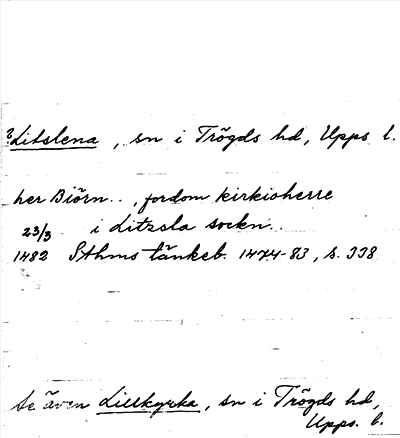 ? Litslena, sn i Trögds hd, Upps l.
her Biörn.., fordom kirkioherre
23/3 i Litzsla sockn..
1482 Sthms tänkeb. 1474-83, s. 338
Se även Lillkyrka, sn i Trögds hd,
Upps. l.